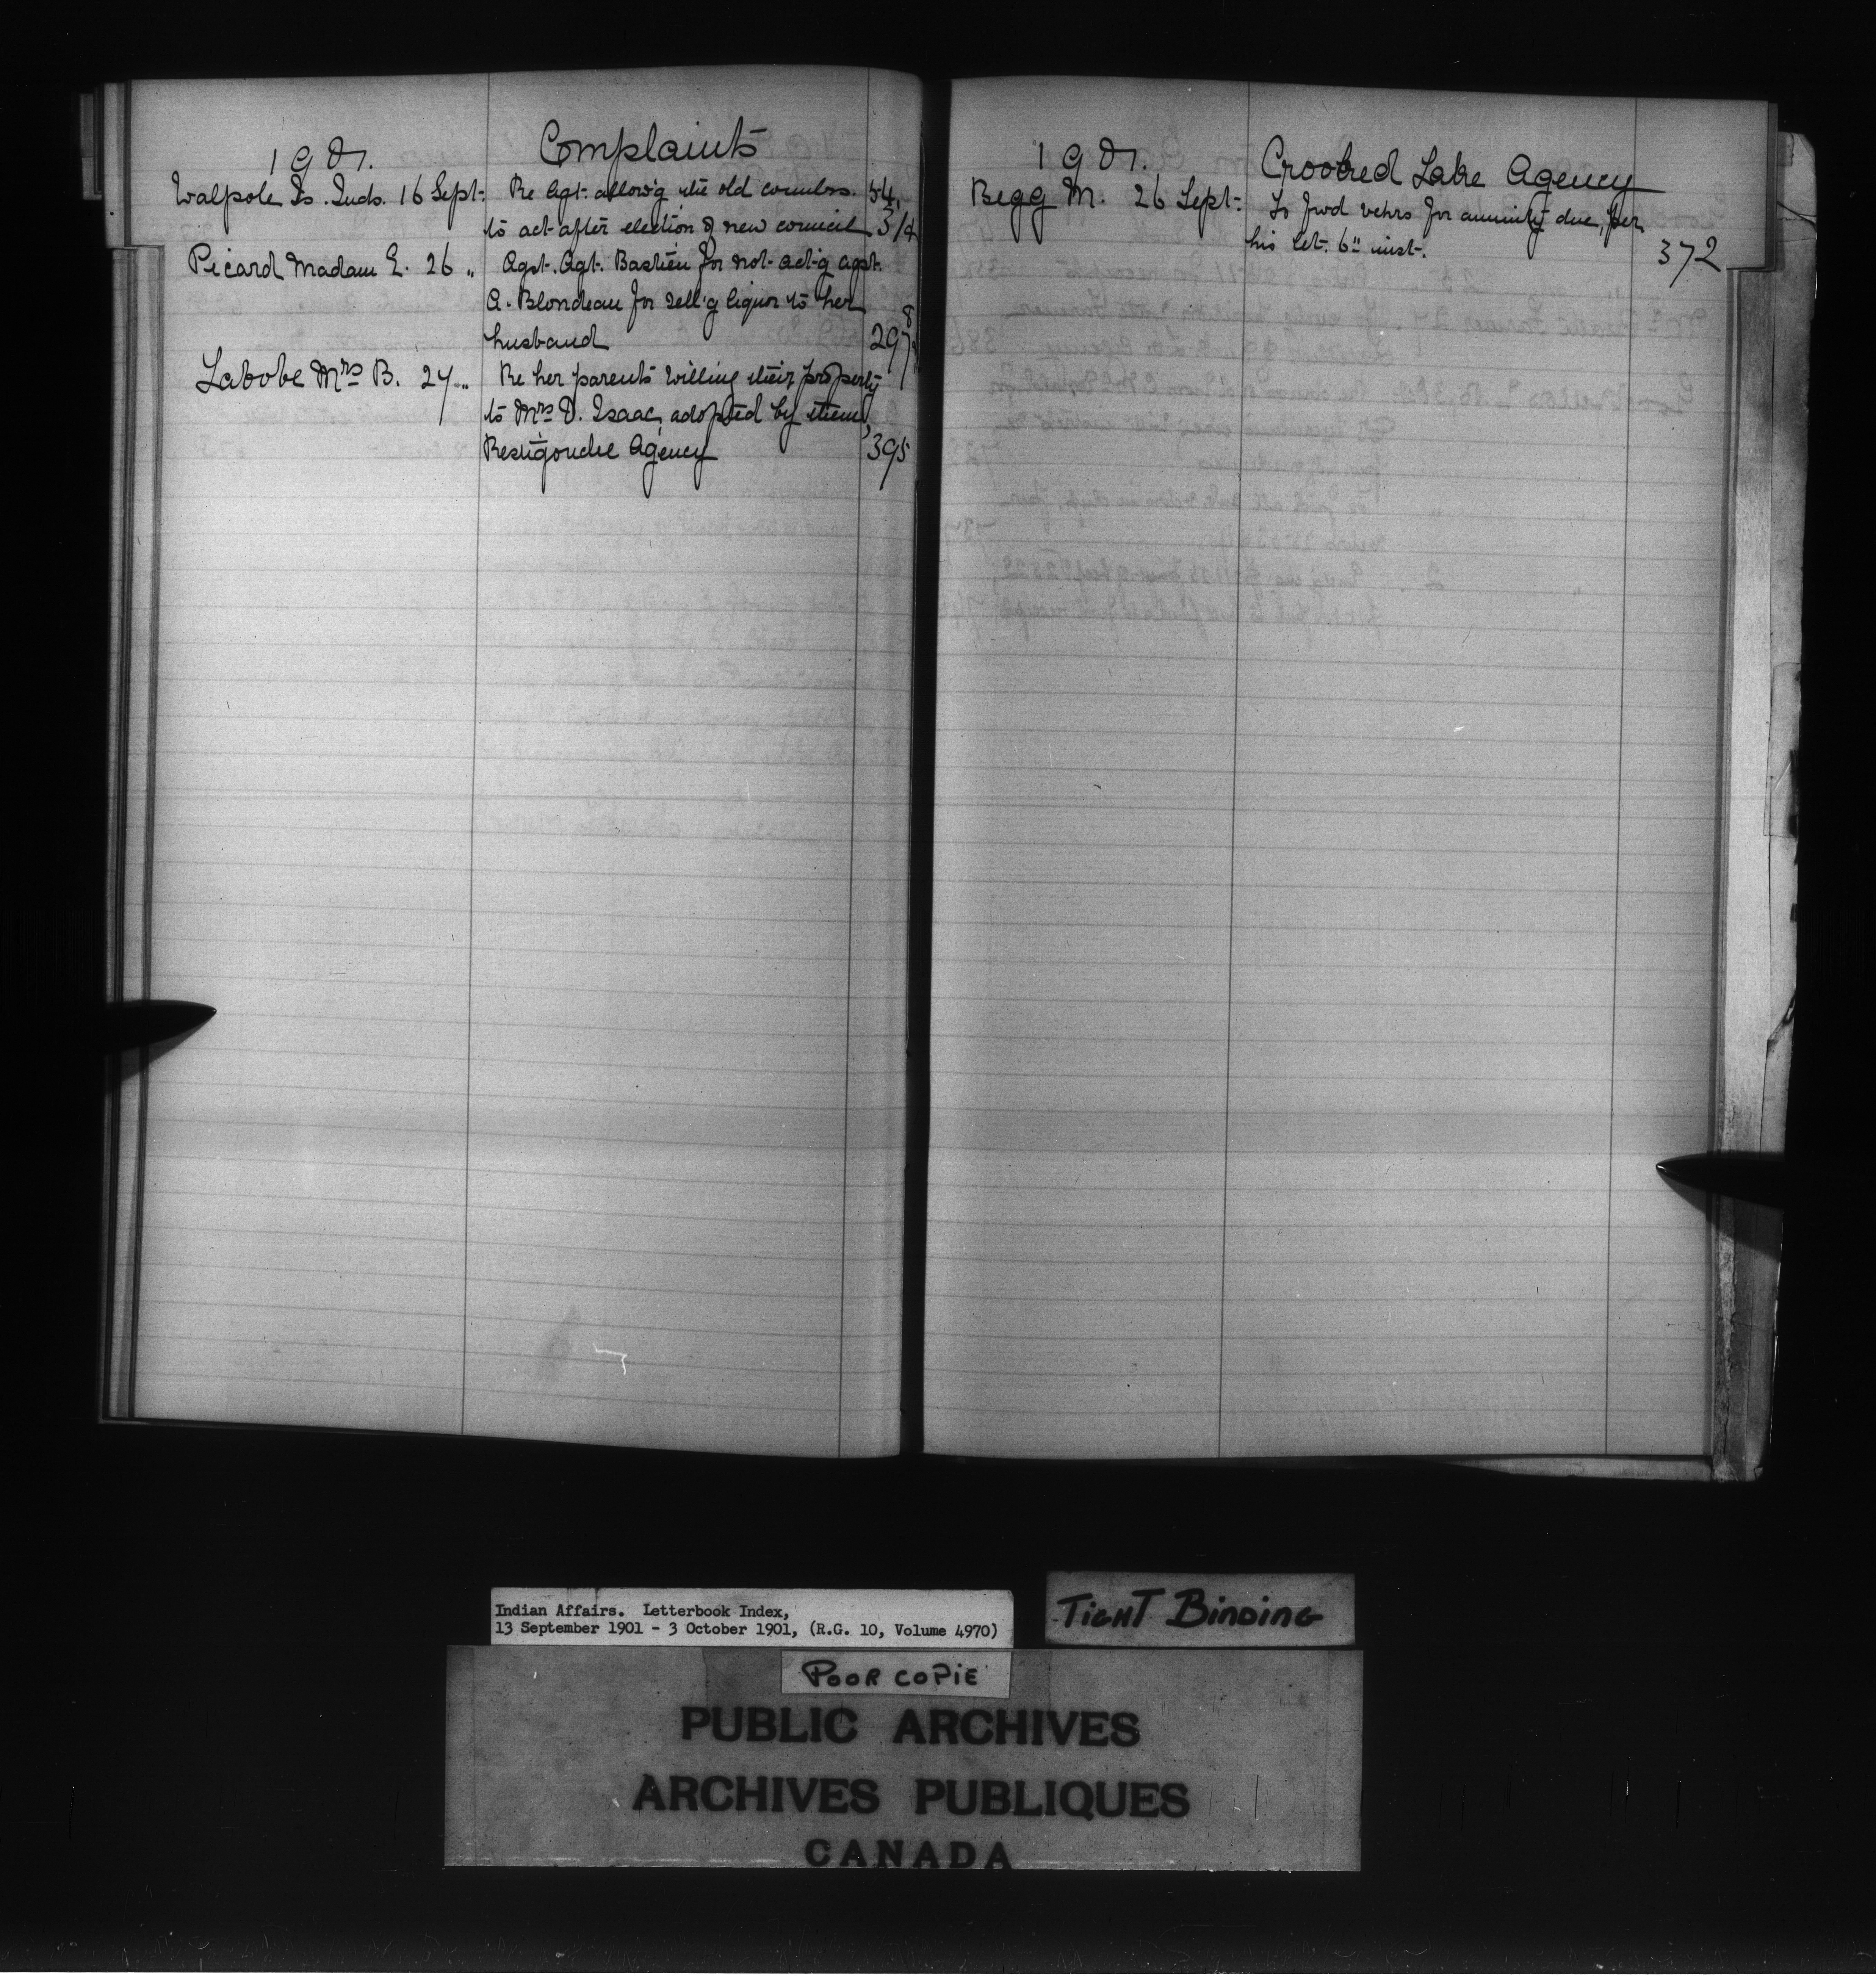 1901. Complaints
Walpole Is. Inds. 16 Sept. Re Agt. allow'g the old counlors. 54,
to act after election of new council 314
Picard Madam E. 26 " Agst. Agt. Bastien for not act'g agst.
A. Blondeau for sell'g liquor to her
husband 297
Labobe Mrs B. 27 " Re her parents willing their property
to Mrs D. Isaac, adopted by them,
Restigouche Agency 395
1901. Crooked Lake Agency
Begg M. 26 Sept. To fwd vchrs for annuity due, per
his let. 6" inst. 372
Indian Affairs. Letterbook Index,
13 September 1901 - 3 October 1901, (R.G. 10, Volume 4970)
TIGHT BINDING
POOR COPIE
PUBLIC ARCHIVES
ARCHIVES PUBLIQUES
CANADA